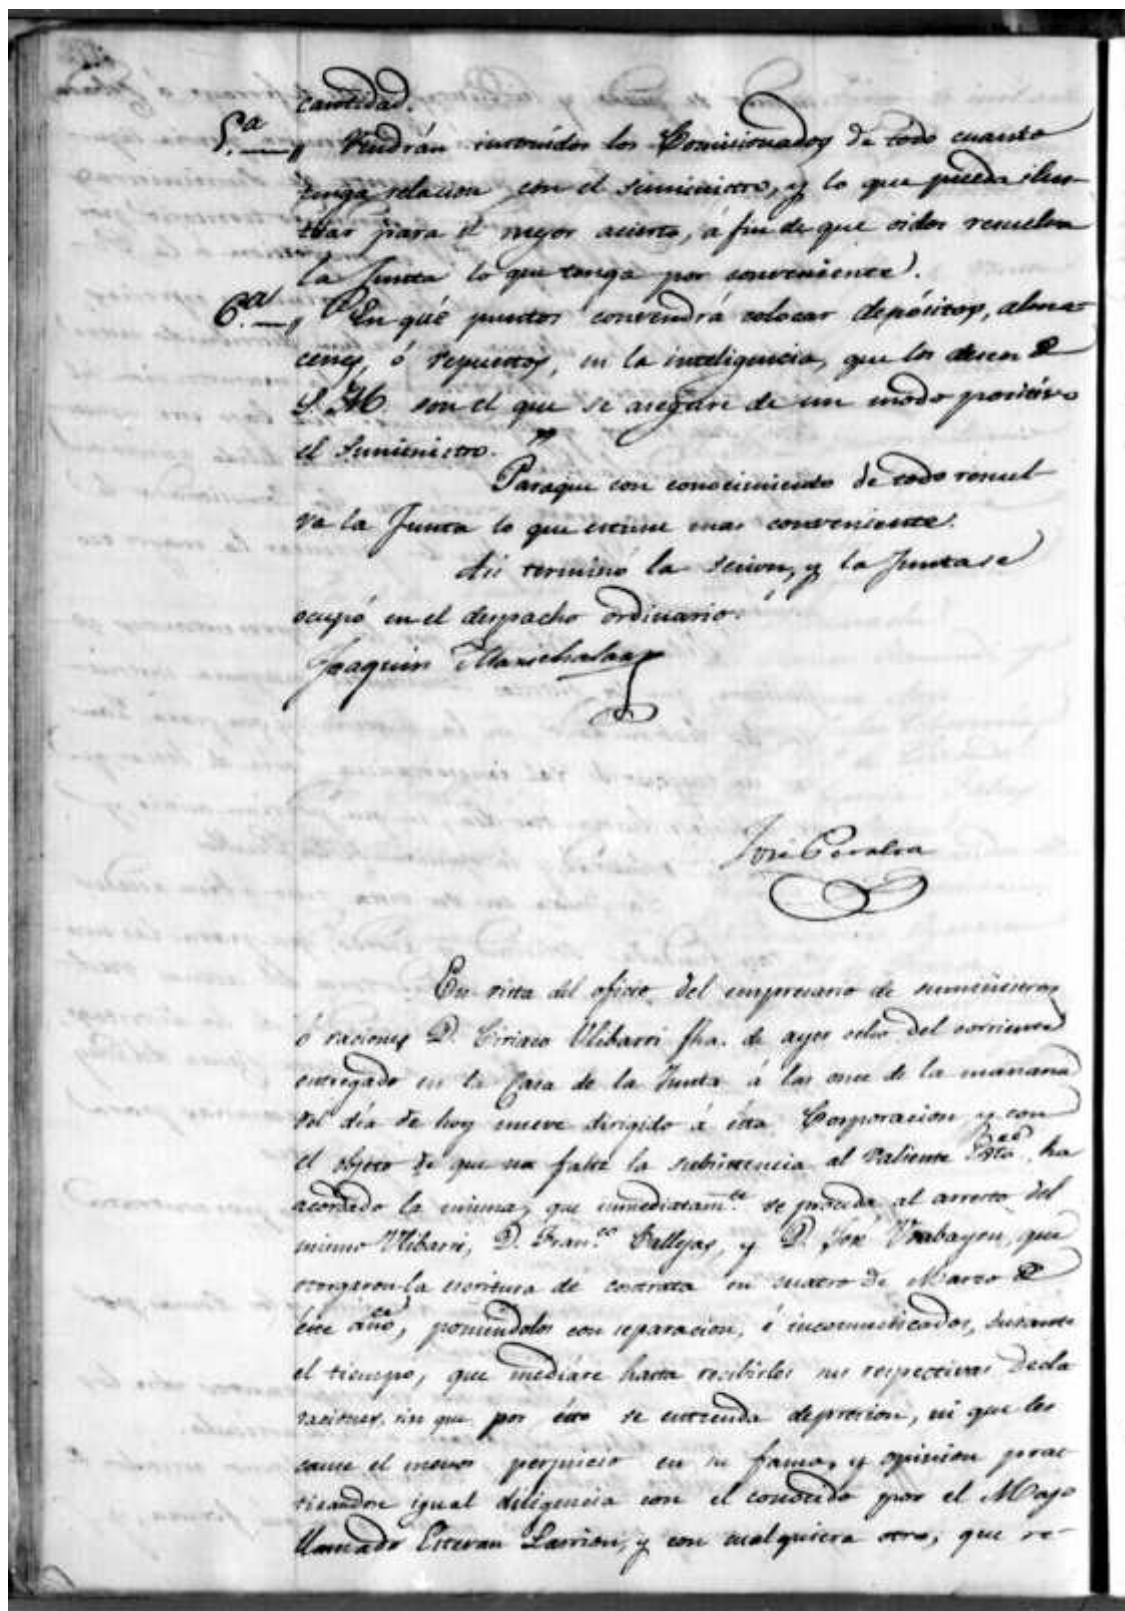 cantidad.
5.ª — „ Vendrán instruidos los Comisionados de todo cuanto
tenga relacion con el suministro, y lo que pueda ilus-
trar para el mejor acierto, á fin de que oidos resuelva
la Junta lo que tenga por conveniente.
6.ª — „ En qué puntos convendrá colocar depósitos, alma-
cenes, ó repuestos, en la inteligencia, que los deseos de
S. M. son el que se asegure de un modo positivo
el suministro. „
Paraque con conocimiento de todo resuel-
va la Junta lo que estime mas conveniente.
Asi terminó la sesion, y la Junta se
ocupó en el despacho ordinario.
Joaquin Marichalar
José Peralta
En vista del oficio del empresario de suministros
ó raciones D. Ciriaco Ulibarri fha. de ayer ocho del corriente
entregado en la Casa de la Junta á las once de la mañana
del dia de hoy nueve dirigido á esta Corporacion, y con
el objeto de que no falte la subsistencia al valiente Exto. ha
acordado la misma, que inmediatam.te se proceda al arresto del
mismo Ulibarri, D. Fran.co Callejas, y D. José Urabayen, que
otorgaron la escritura de contrata en cuatro de Marzo de
éste año, poniendolos con separacion, é incomunicados, durante
el tiempo, que mediáre hasta recibirles sus respectivas decla
raciones, sin que por ésto se entienda depresion, ni que les
cause el menor perjuicio en su fama, y opinion prac
ticandose igual diligencia con el conocido por el Majo
llamado Estevan Larrion, y con cualquiera otro, que re-